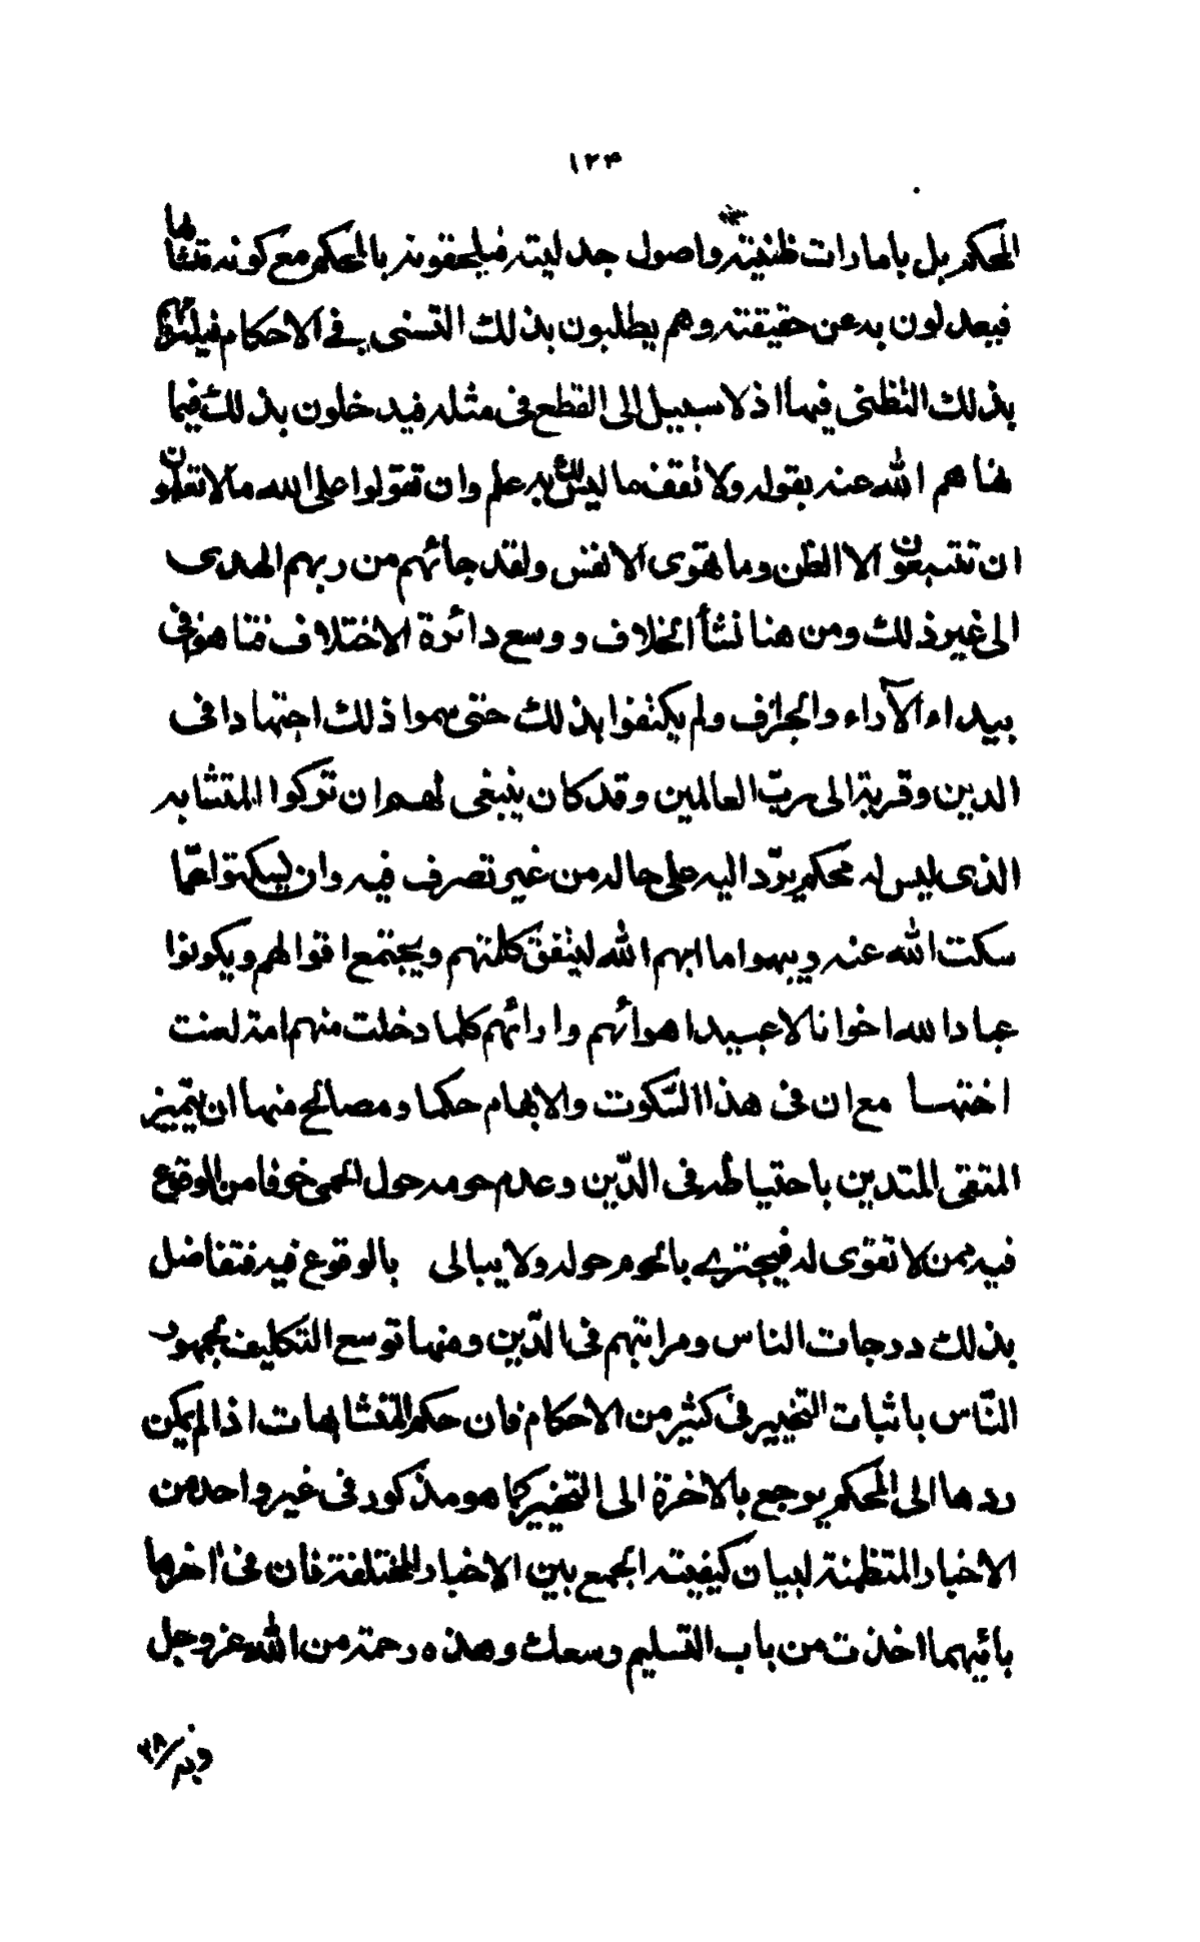 ١٢٤
المحكم بل بامارات ظنية واصول جدلية فيلحقونه بالمحكم مع كونه متشابها
فيعدلون به عن حقيقته وهم يطلبون بذلك التسنى فى الاحكام فيلزمهم
بذلك التظنى فيها اذ لا سبيل الى القطع فى مثله فيدخلون بذلك فيما
نهاهم الله عنه بقوله ولا تقف ما ليس لك به علم وان تقولوا على الله مالا تعلمون
ان تتبعون الا الظن وما تهوى الانفس ولقد جائهم من ربهم الهدى
الى غير ذلك ومن هنا نشأ الخلاف ووسع دائرة الاختلاف فتاهو فى
بيداء الآراء والجزاف ولم يكتفوا بذلك حتى سموا ذلك اجتهادا فى
الدين وقربة الى ربّ العالمين وقد كان ينبغى لهم ان تركوا المتشابه
الذى ليس له محكم يردّ اليه على حاله من غير تصرف فيه وان ليسكتوا عمّا
سكت الله عنه ويبهموا ما ابهم الله ليتفق كلمتهم ويجتمع اقوالهم ويكونوا
عبادا لله اخوانا لا عبيدا هوائهم وارائهم كلما دخلت منهم امة لعنت
اختها مع ان فى هذا السّكوت والابهام حكما ومصالح منها ان يتميز
المتقى المتدين باحتياطه فى الدّين وعدم حومه حول الحمى خوفا من الوقوع
فيه ممن لا تقوى له فيجترى بالحوم حوله ولا يبالى بالوقوع فيه فتفاضل
بذلك درجات الناس ومراتبهم فى الدّين ومنها توسع التكليف لجمهور
النّاس باثبات التخيير فى كثير من الاحكام فان حكم المتشابهات اذا لم يمكن
ردها الى المحكم يرجع بالاخرة الى التخيير كما هو مذكور فى غير واحد من
الاخبار المتظمنة لبيان كيفية الجمع بين الاخبار المختلفة فان فى اخرها
بائيهما اخذت من باب التسليم وسعك وهذه رحمة من الله عز وجل